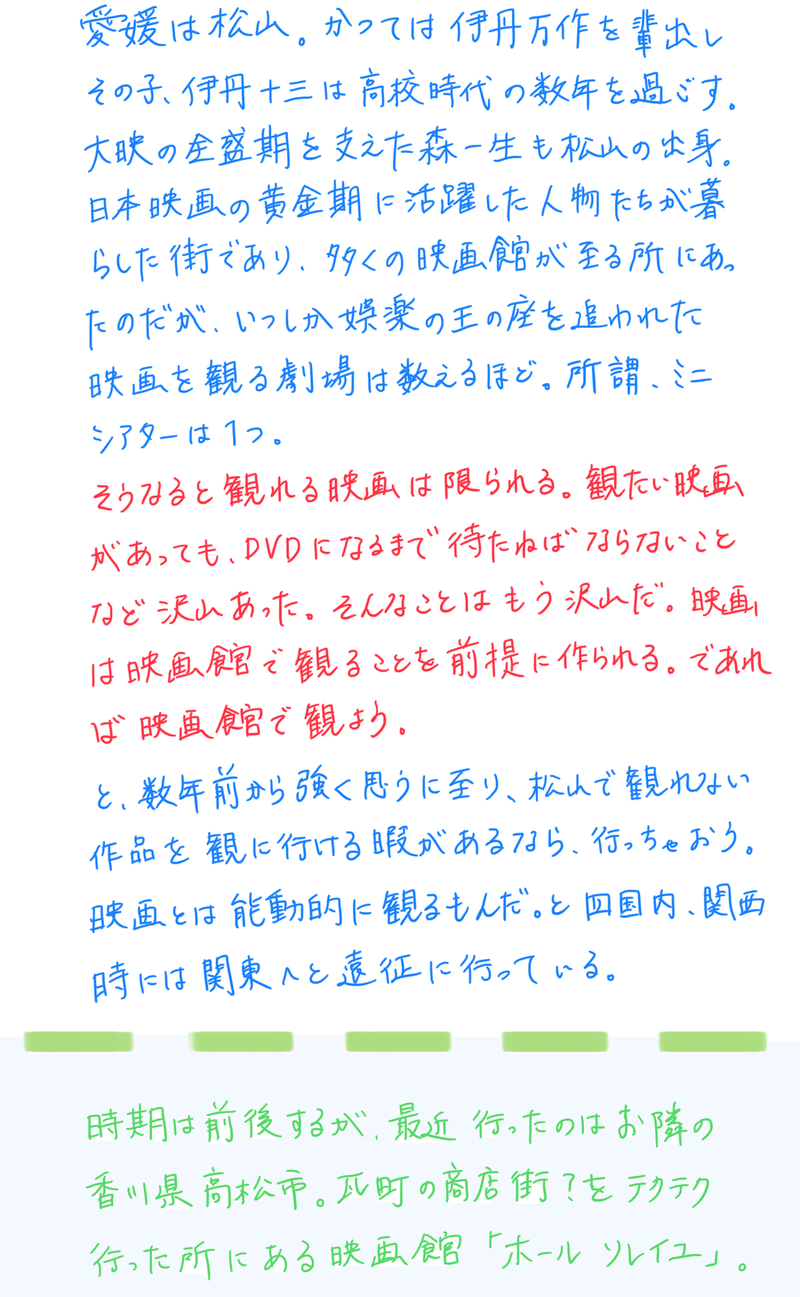 愛媛は松山。かつては伊丹万作を輩出し
その子、伊丹十三は高校時代の数年を過ごす。
大映の全盛期を支えた森一生も松山の出身。
日本映画の黄金期に活躍した人物たちが暮
らした街であり、多くの映画館が至る所にあっ
たのだが、いつしか娯楽の王の座を追われた
映画を観る劇場は数えるほど。所謂、ミニ
シアターは1つ。
そうなると観れる映画は限られる。観たい映画
があっても、DVDになるまで待たねばならないこと
など沢山あった。そんなことはもう沢山だ。映画
は映画館で観ることを前提に作られる。であれ
ば映画館で観よう。
と、数年前から強く思うに至り、松山で観れない
作品を観に行ける暇があるなら、行っちゃおう。
映画とは能動的に観るもんだ。と四国内、関西
時には関東へと遠征に行っている。
時期は前後するが、最近行ったのはお隣の
香川県高松市。瓦町の商店街?をテクテク
行った所にある映画館「ホールソレイユ」。